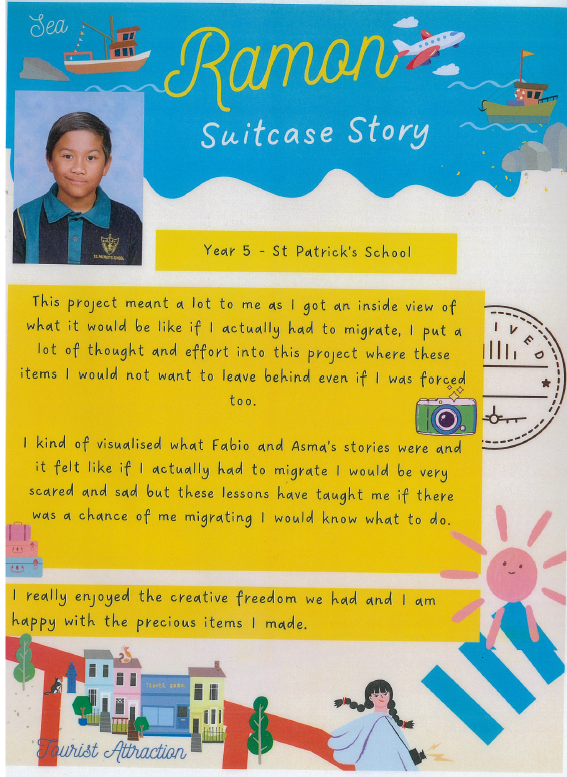 Sea
Ramon
Suitcase Story
Year 5 - St Patrick's School
This project meant a lot to me as I got an inside view of
what it would be like if I actually had to migrate, I put a
lot of thought and effort into this project where these
items I would not want to leave behind even if I was forced
too.
I kind of visualised what Fabio and Asma's stories were and
it felt like if I actually had to migrate I would be very
scared and sad but these lessons have taught me if there
was a chance of me migrating I would know what to do.
I really enjoyed the creative freedom we had and I am
happy with the precious items I made.
IVED
Tourist Attraction